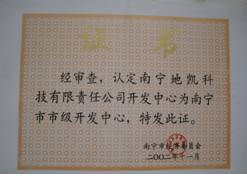 证书
经审查，认定南宁地凯科
技有限责任公司开发中心为南宁
市市级开发中心，特发此证。
南宁市经济委员会
二〇〇二年十一月